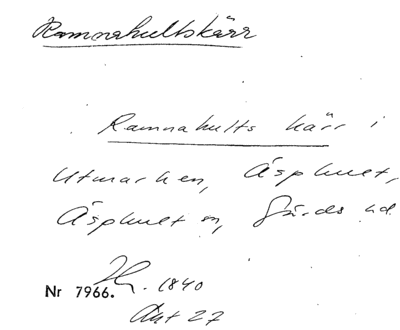 Ramnahultskärr
Ramnahults kärr i
Utmarken, Äsphult,
Äsphult sn, Gärds hd.
Nr 7966. 1840
Akt 27